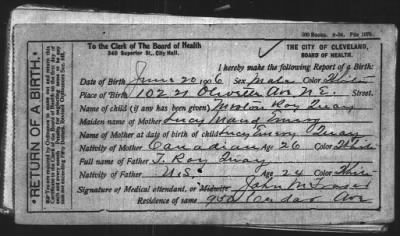 To the Clerk of The Board of Health
340 Superior St., City Hall.
THE CITY OF CLEVELAND,
BOARD OF HEALTH.
RETURN OF A BIRTH.
I hereby make the following Report of a Birth:
Date of Birth June 20 1906 Sex Male Color White
Place of Birth 10221 Olivster Ave N.E. Street.
Name of child (if any has been given) Roy Quay
Maiden name of Mother Lucy Maud Emery
Name of Mother at date of birth of child Lucy Emery Quay
Nativity of Mother Canadian Age 26 Color White
Full name of Father T. Roy Quay
Nativity of Father U.S. Age 24 Color White
Signature of Medical attendant, or Midwife John M. Fraser
Residence of same Cedar Ave